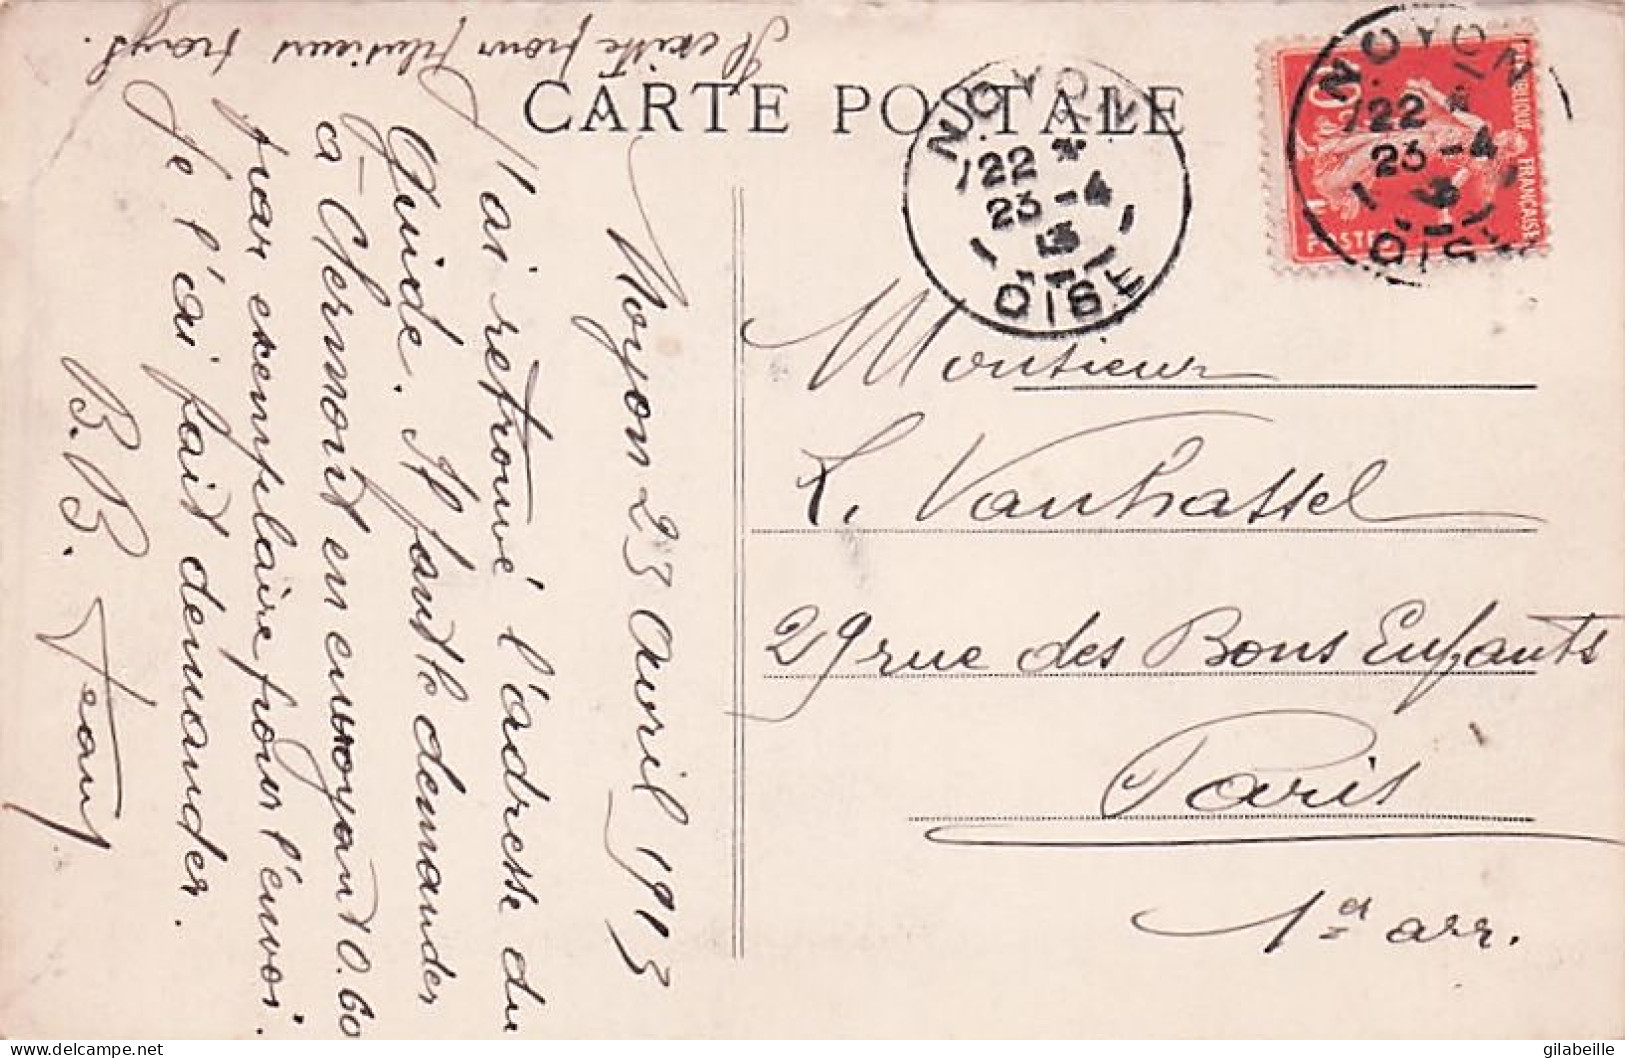 CARTE POSTALE
Noyon 23 avril 1913
J'ai retrouvé l'adresse du
Guide. Il faut le demander
à Clermont en envoyant 0.60
par exemplaire pour l'envoi.
Je l'ai fait demander.
B. B. Jeany
Il existe pour plusieurs pays.
NOYON
22
23-4
13
OISE
NOYON
22
23-4
OISE
RÉPUBLIQUE FRANÇAISE
POSTES
Monsieur
L. Vanhassel
29 rue des Bons Enfants
Paris
1er arr.
delcampe.net
gilabeille